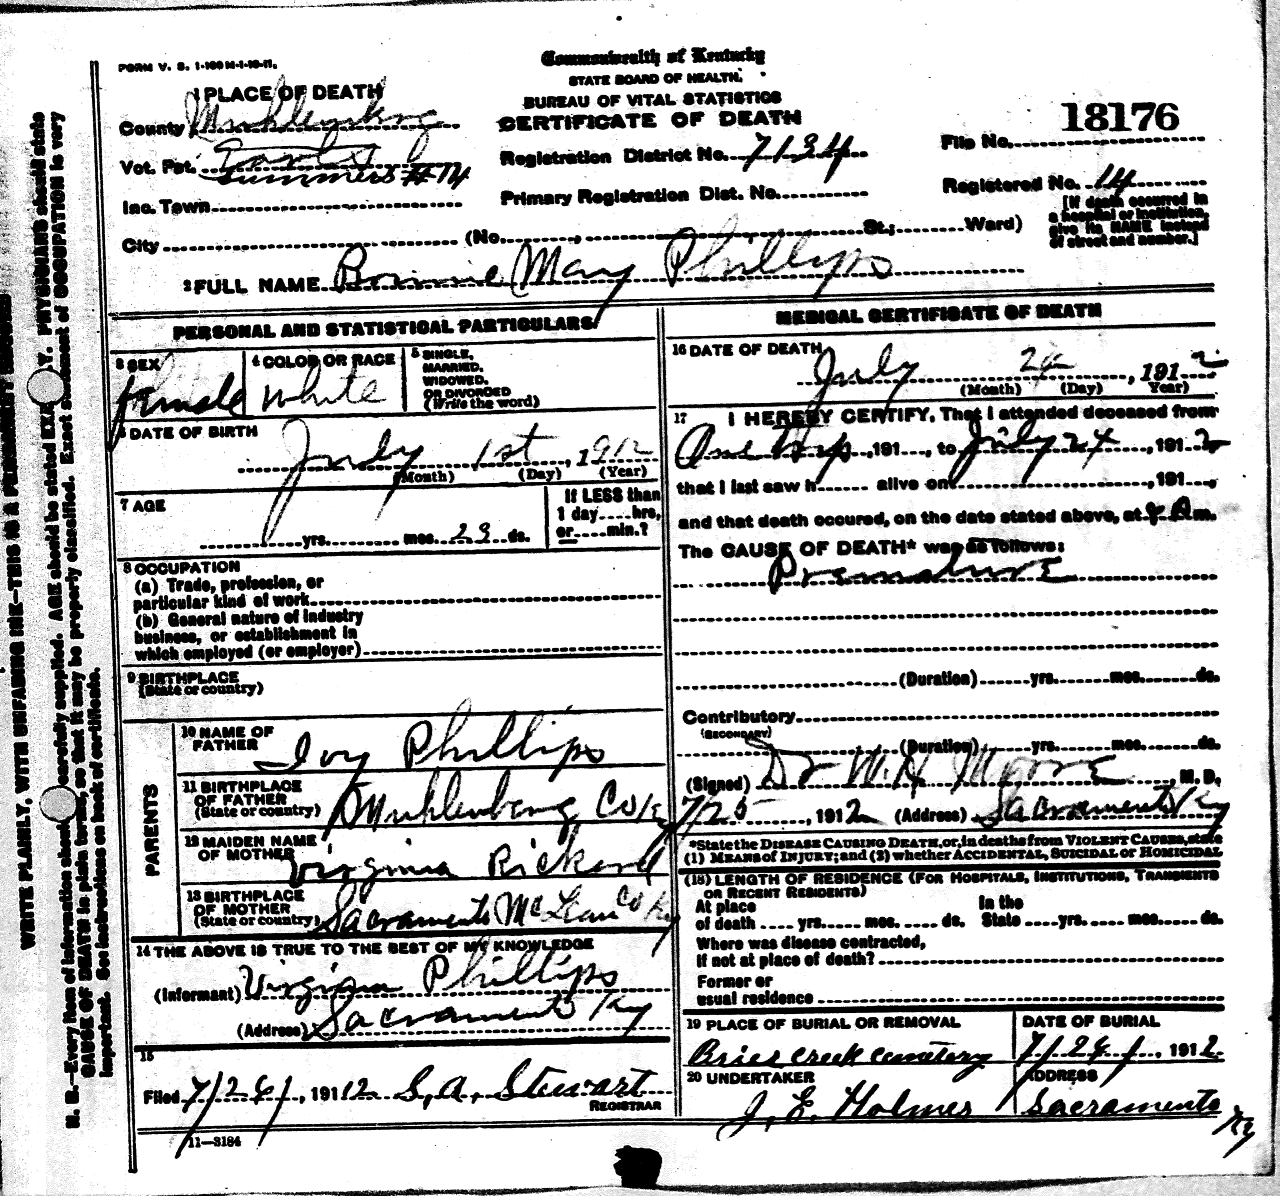 FORM V. S. 1-100 M-1-19-11.
Commonwealth of Kentucky
STATE BOARD OF HEALTH.
BUREAU OF VITAL STATISTICS
CERTIFICATE OF DEATH
1 PLACE OF DEATH
County Muhlenberg
Vot. Pct.
Summers #14
Inc. Town
City (No. , St.; Ward)
Registration District No. 7134
Primary Registration Dist. No.
File No. 18176
Registered No. 14
[If death occurred in a hospital or institution, give its NAME instead of street and number.]
2 FULL NAME Bonnie Mary Phillips
PERSONAL AND STATISTICAL PARTICULARS
3 SEX
female
4 COLOR OR RACE
White
5 SINGLE, MARRIED, WIDOWED, OR DIVORCED (Write the word)
6 DATE OF BIRTH
July 1st, 1912
(Month) (Day) (Year)
7 AGE
yrs. mos. 23 ds.
If LESS than 1 day hrs, or min.?
8 OCCUPATION
(a) Trade, profession, or
particular kind of work
(b) General nature of industry
business, or establishment in
which employed (or employer)
9 BIRTHPLACE
(State or country)
PARENTS
10 NAME OF FATHER Ivy Phillips
11 BIRTHPLACE OF FATHER (State or country) Muhlenberg Co Ky
12 MAIDEN NAME OF MOTHER Virginia Rickard
13 BIRTHPLACE OF MOTHER (State or country) Sacramento McLean Co Ky
14 THE ABOVE IS TRUE TO THE BEST OF MY KNOWLEDGE
(Informant) Virginia Phillips
(Address) Sacramento Ky
15
Filed 7/26/, 1912 S. A. Stewart
REGISTRAR
11—3184
MEDICAL CERTIFICATE OF DEATH
16 DATE OF DEATH
July 24, 1912
(Month) (Day) Year)
17 I HEREBY CERTIFY, That I attended deceased from
One, 191, to July 24, 1912
that I last saw h alive on, 191,
and that death occured, on the date stated above, at m.
The CAUSE OF DEATH* was as follows:
Premature
(Duration) yrs. mos. ds.
Contributory
(SECONDARY)
(Duration) yrs. mos. ds.
(Signed) Dr W. H Moore, M. D.
7/25, 1912 (Address) Sacramento Ky
*State the DISEASE CAUSING DEATH, or, in deaths from VIOLENT CAUSES, state
(1) MEANS of INJURY; and (2) whether ACCIDENTAL, SUICIDAL or HOMICIDAL
(18) LENGTH OF RESIDENCE (FOR HOSPITALS, INSTITUTIONS, TRANSIENTS OR RECENT RESIDENTS)
At place of death yrs. mos. ds. In the State yrs. mos. ds.
Where was disease contracted,
if not at place of death?
Former or
usual residence
19 PLACE OF BURIAL OR REMOVAL
Brier Creek Cemetery
DATE OF BURIAL
7/24/, 1912.
20 UNDERTAKER
J. E. Holmes
ADDRESS
Sacramento Ky
WRITE PLAINLY, WITH UNFADING INK—THIS IS A PERMANENT RECORD
N. B.—Every item of information should carefully supplied. AGE should be stated PHYSICIANS should state
CAUSE OF DEATH in plain terms, so that it may be properly classified. Exact statement of OCCUPATION is very
important. See instructions on back of certificate.